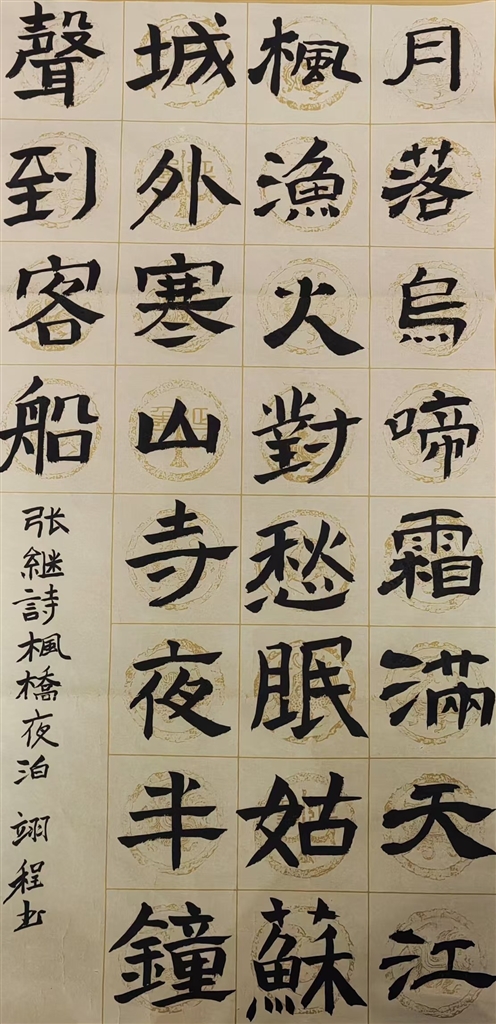 月落烏啼霜滿天江
楓漁火對愁眠姑蘇
城外寒山寺夜半鐘
聲到客船
张継詩楓橋夜泊 翊程书